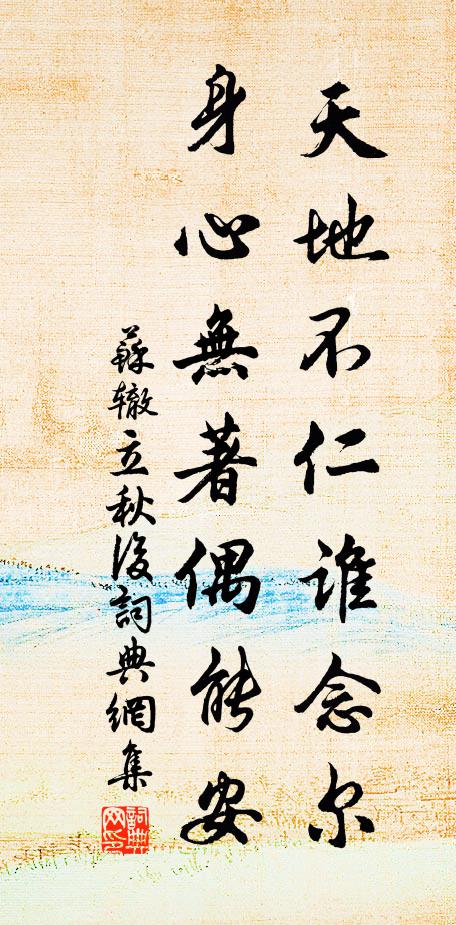 天地不仁谁念尔
身心無著偶能安
蘇辙立秋後詞典網集
詞典
网印